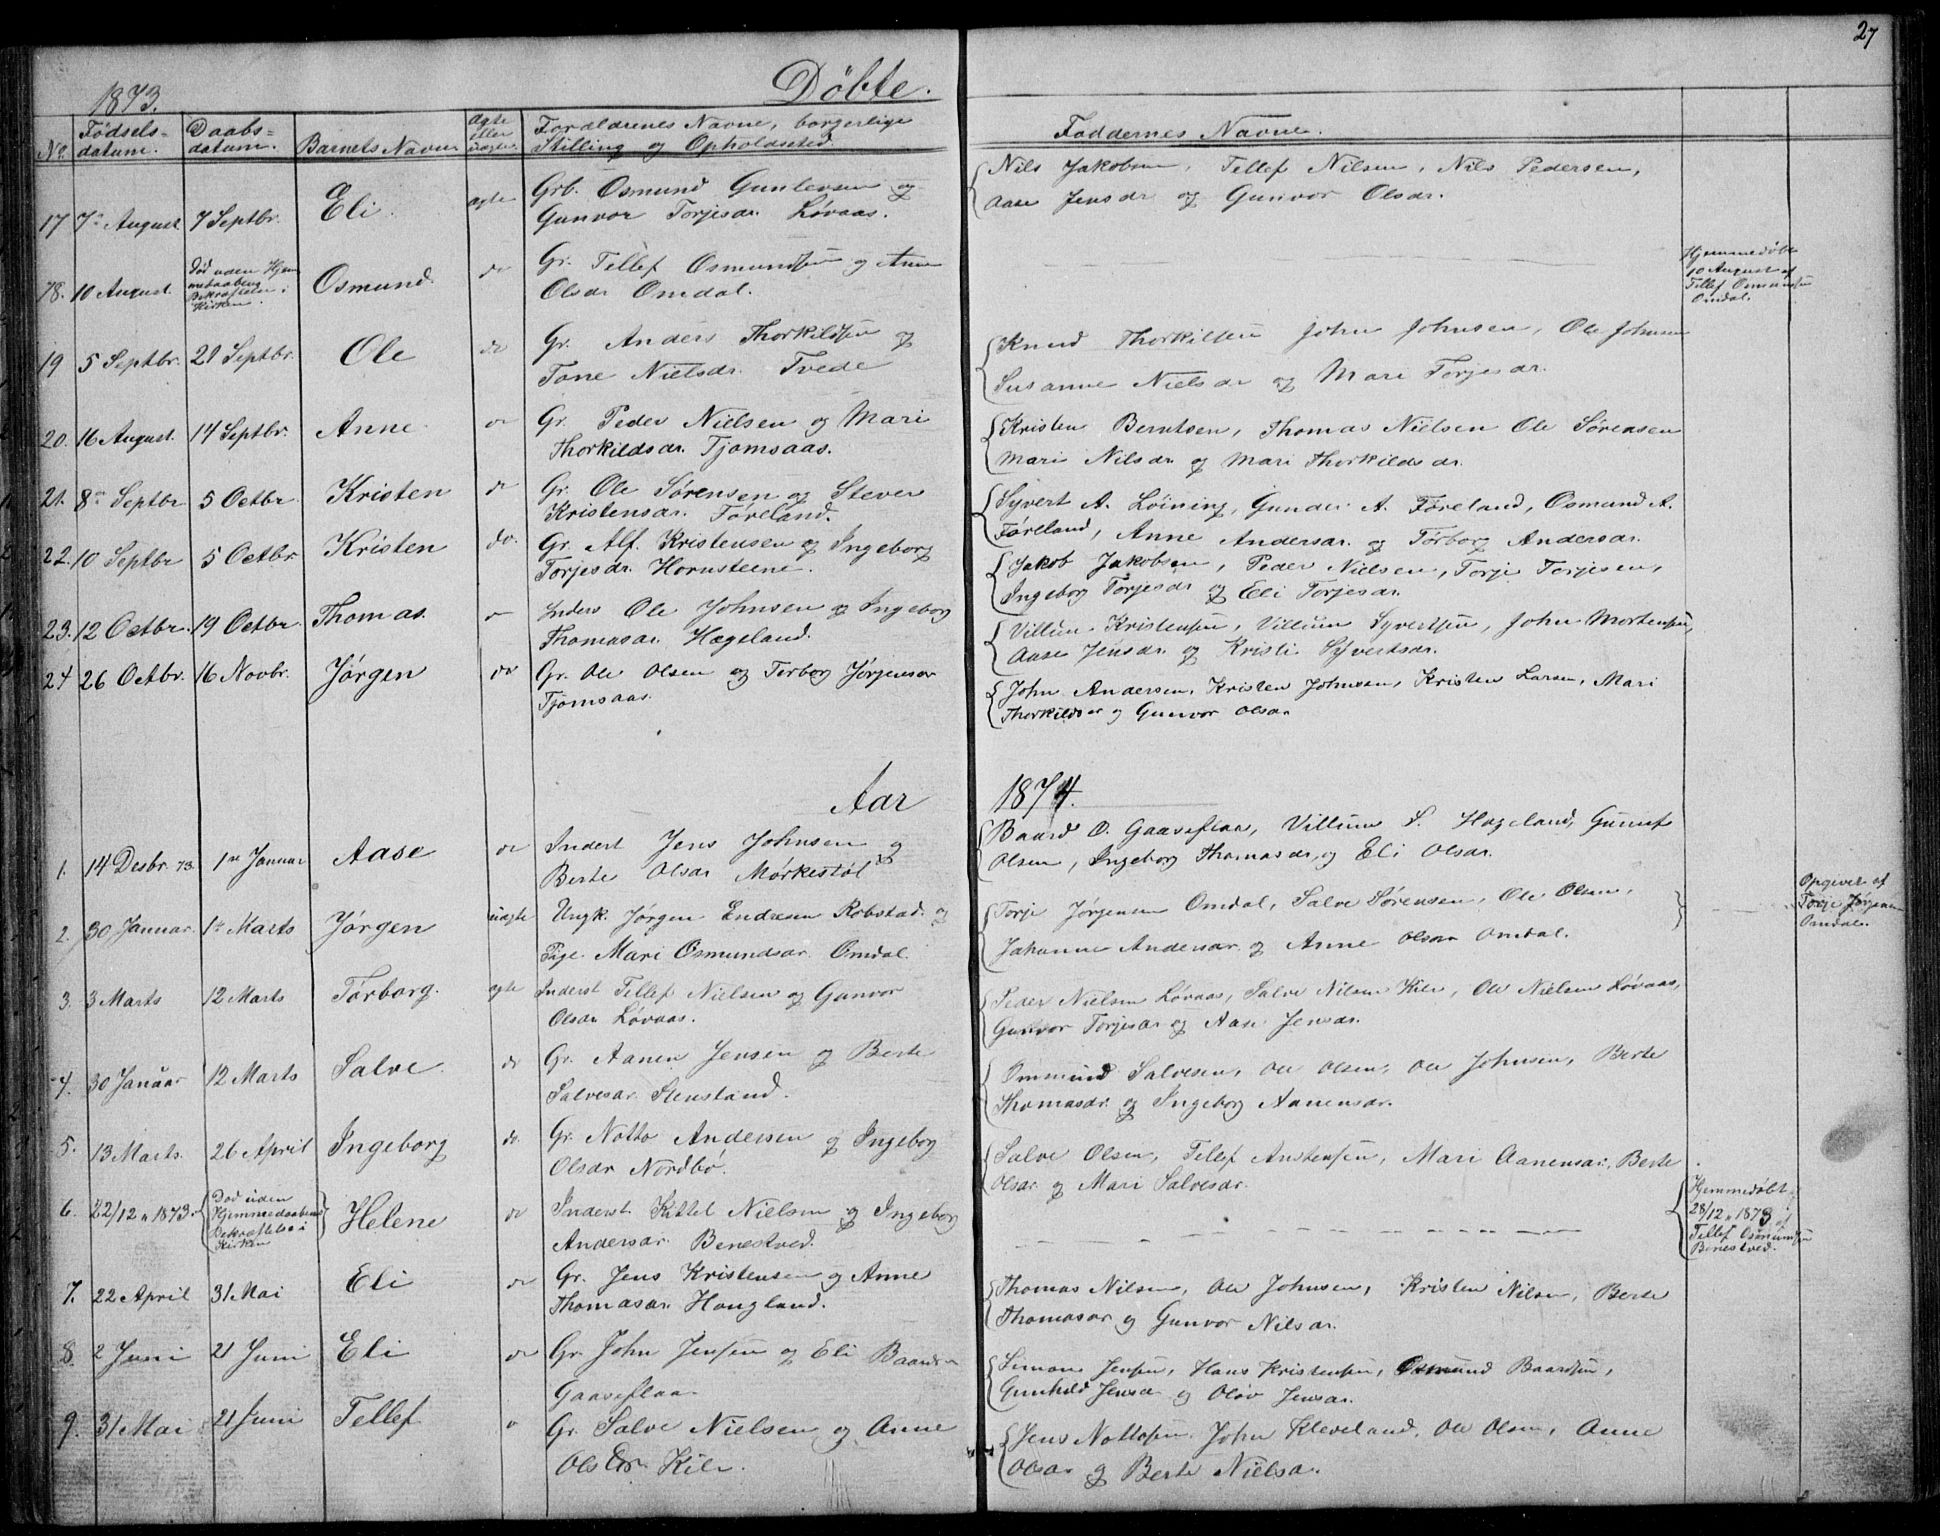 27
1873.
Døbte.
No. Fødsels-datum. Daabs-datum. Barnets Navn ægte eller uægte Forældrenes Navne, borgerlige Stilling og Opholdssted. Faddernes Navne.
17 7de August 7 Septbr. Eli. ægte Grb. Osmund Gunlevsen og Nils Jakobsen, Tellef Nilsen, Nils Pedersen,
Gunvor Torjesdr. Løvaas. Aase Jensdr og Gunvor Olsdr.
18. 10 August. Død uden Hjem- Osmund. do Gr. Tellef Osmundsen og Anne Hjemmedøbt
medaabens Olsdr Omdal. 10 August af
Bekræftelse i Tellef Osmundsen
Kirken. Omdal.
19 5 Septbr. 21 Septbr. Ole do Gr. Anders Thorkildsen og Knud Thorkilsen John Johnsen, Ole Johnsen
Tone Nielsdr. Tvede Susanne Nielsdr og Mari Torjesdr.
20. 16 August. 14 Septbr. Anne. do Gr. Peder Nielsen og Mari Kristen Berntsen, Thomas Nielsen Ole Sørensen
Thorkildsdr. Tjomsaas. Mari Nilsdr. og Mari Thorkildsdr.
21. 8de Septbr 5 Octbr. Kristen do Gr. Ole Sørensen og Stever Syvert A. Løining, Gunder A. Føreland, Osmund A.
Kristensdr. Føreland. Føreland, Anne Andersdr. og Tørborg Andersdr.
22. 10 Septbr 5 Octbr Kristen do. Gr. Alf. Kristensen og Ingeborg Jakob Jakobsen, Peder Nielsen, Torje Torjesen,
Torjesdr. Hornsteene. Ingeborg Torjesdr og Eli Torjesdr.
23. 12 Octbr. 19 Octbr. Thomas. do Inders Ole Johnsen og Ingeborg Villum Kristensen, Villum Syvertsen, John Mortensen,
Thomasdr. Hægeland. Aase Jensdr og Kristi Syvertsdr.
24 26 Octbr. 16 Novbr. Jørgen do Gr. Ole Olsen og Torborg Jørgensdr John Andersen, Kristen Johnsen, Kristen Larsen, Mari
Tjomsaas. Thorkildsdr og Gunvor Olsdr
Aar 1874.
1. 14 Desbr. 73. 1ste Januar Aase do Inderst Jens Johnsen og Baard O. Gaaseflaa, Villum S. Hægeland, Gunuf
Berte Olsdr Mørkestøl Olsen, Ingeborg Thomasdr, og Eli Olsdr.
2. 30 Januar. 1ste Marts Jørgen uægte Ungk. Jørgen Endresen Robstad og Torje Jørgensen Omdal, Salve Sørensen, Ole Olsen, Opgivet af
Pige Mari Osmundsdr. Omdal. Johanne Andersdr. og Anne Olsdr Omdal. Torje Jørgensen
Omdal.
3. 3 Marts 12 Marts Tørborg. ægte Inderst Tellef Nielsen og Gunvor Peder Nielsen Løvaas, Salve Nilsen Kile, Ole Nielsen Løvaas,
Olsdr Løvaas. Gunvor Torjesdr og Aase Jensdr.
4. 30 Januar 12 Marts Salve. do Gr. Aanen Jensen og Berte Ommund Salvesen, Ole Olsen, Ole Johnsen, Berte
Salvesdr. Stensland. Thomasdr. og Ingeborg Aanensdr.
5. 13 Marts. 26 April Ingeborg do. Gr. Notto Andersen og Ingeborg Salve Olsen, Tellef Anstensen, Mari Aanensdr, Berte
Olsdr Nordbø. Olsdr. og Mari Salvesdr.
6. 22/12 1873. Død uden Helene do Inderst Kittel Nielsen og Ingeborg Hjemmedøbt
Hjemmedaabens Andersdr. Benestved. 28/12 1873 af
Bekræftelse i Tellef Osmundsen
Kirken Benestved.
7. 22 April 31 Mai Eli do Gr. Jens Kristensen og Anne Thomas Nilsen, Ole Johnsen, Kristen Nilsen, Berte
Thomasdr. Hougland. Thomasdr og Gunvor Nilsdr.
8. 2 Juni 21 Juni Eli do Gr. John Jensen og Eli Baardsdr Simon Jensen, Hans Kristensen, Osmund Baardsen,
Gaaseflaa Gunhild Jensdr og Oløv Jensdr.
9. 31 Mai 21 Juni Tellef do Gr. Salve Nielsen og Anne Jens Nottosen John Kleveland, Ole Olsen, Anne
Olsdr. Kile. Olsdr og Berte Nielsdr.